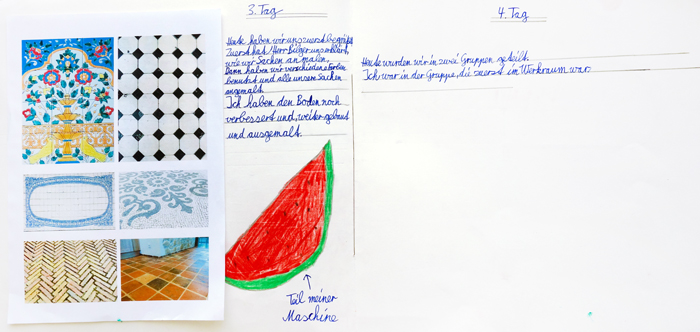 3. Tag
Heute haben wir uns zuerst begrüßt.
Zuerst hat Herr Bürger uns erklärt,
wie wir Sachen an malen,
Dann haben wir verschiedene Farben
benutzt und alle unsere Sachen
angemalt.
Ich haben den Boden noch
verbessert und, weiter gebaut
und ausgemalt.
Teil meiner
Maschine
4. Tag
Heute wurden wir in zwei Gruppen geteilt.
Ich war in der Gruppe, die zuerst im Werkraum war